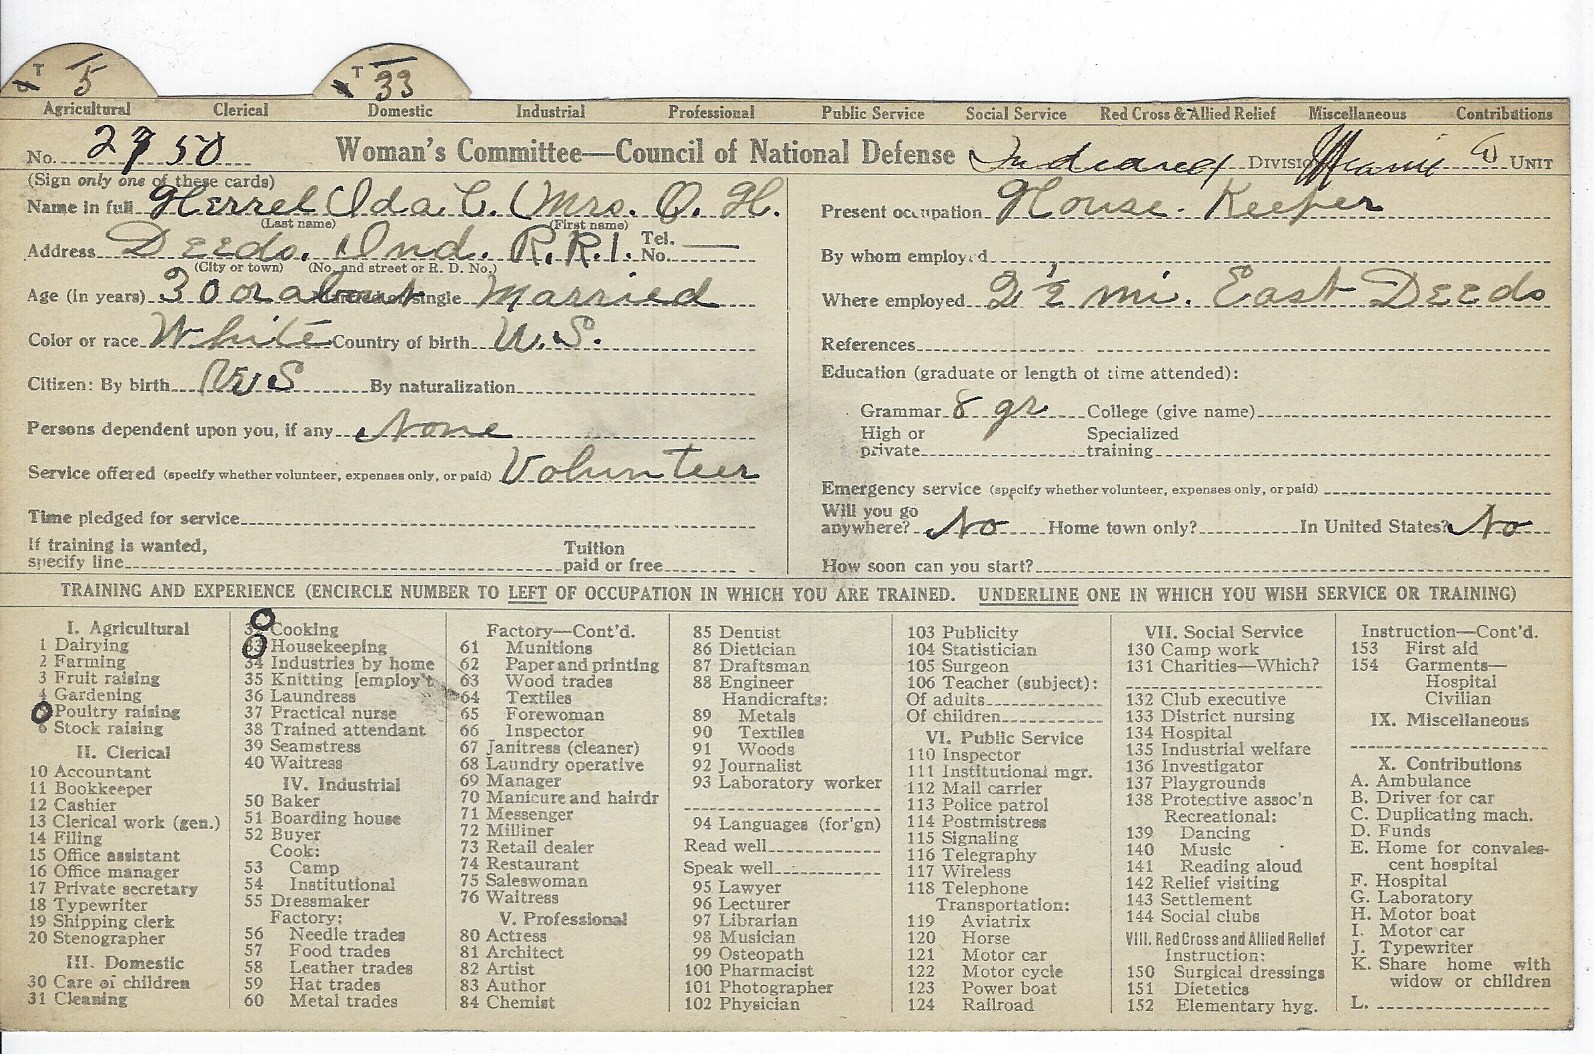 T 5 T 33
Agricultural Clerical Domestic Industrial Professional Public Service Social Service Red Cross & Allied Relief Miscellaneous Contributions
No. 2750 Woman's Committee—Council of National Defense Indiana DIVISION Miami W UNIT
(Sign only one of these cards)
Name in full Herrel Ida C. (Mrs. O. H.
(Last name) (First name)
Address Deeds. Ind. R.R.1. Tel. No.
(City or town) (No. and street or R. D. No.)
Age (in years) 30 or about Married or single Married
Color or race White Country of birth U.S.
Citizen: By birth Yes By naturalization
Persons dependent upon you, if any None
Service offered (specify whether volunteer, expenses only, or paid) Volunteer
Time pledged for service
If training is wanted, specify line Tuition paid or free
Present occupation House Keeper
By whom employed
Where employed 2 1/2 mi. East Deeds
References
Education (graduate or length of time attended):
Grammar 8 gr College (give name)
High or private Specialized training
Emergency service (specify whether volunteer, expenses only, or paid)
Will you go anywhere? No Home town only? In United States? No
How soon can you start?
TRAINING AND EXPERIENCE (ENCIRCLE NUMBER TO LEFT OF OCCUPATION IN WHICH YOU ARE TRAINED. UNDERLINE ONE IN WHICH YOU WISH SERVICE OR TRAINING)
I. Agricultural
1 Dairying
2 Farming
3 Fruit raising
4 Gardening
5 Poultry raising
6 Stock raising
II. Clerical
10 Accountant
11 Bookkeeper
12 Cashier
13 Clerical work (gen.)
14 Filing
15 Office assistant
16 Office manager
17 Private secretary
18 Typewriter
19 Shipping clerk
20 Stenographer
III. Domestic
30 Care of children
31 Cleaning
32 Cooking
33 Housekeeping
34 Industries by home
35 Knitting [employ't
36 Laundress
37 Practical nurse
38 Trained attendant
39 Seamstress
40 Waitress
IV. Industrial
50 Baker
51 Boarding house
52 Buyer
Cook:
53 Camp
54 Institutional
55 Dressmaker
Factory:
56 Needle trades
57 Food trades
58 Leather trades
59 Hat trades
60 Metal trades
Factory—Cont'd.
61 Munitions
62 Paper and printing
63 Wood trades
64 Textiles
65 Forewoman
66 Inspector
67 Janitress (cleaner)
68 Laundry operative
69 Manager
70 Manicure and hairdr
71 Messenger
72 Milliner
73 Retail dealer
74 Restaurant
75 Saleswoman
76 Waitress
V. Professional
80 Actress
81 Architect
82 Artist
83 Author
84 Chemist
85 Dentist
86 Dietician
87 Draftsman
88 Engineer
Handicrafts:
89 Metals
90 Textiles
91 Woods
92 Journalist
93 Laboratory worker
94 Languages (for'gn)
Read well
Speak well
95 Lawyer
96 Lecturer
97 Librarian
98 Musician
99 Osteopath
100 Pharmacist
101 Photographer
102 Physician
103 Publicity
104 Statistician
105 Surgeon
106 Teacher (subject):
Of adults
Of children
VI. Public Service
110 Inspector
111 Institutional mgr.
112 Mail carrier
113 Police patrol
114 Postmistress
115 Signaling
116 Telegraphy
117 Wireless
118 Telephone
Transportation:
119 Aviatrix
120 Horse
121 Motor car
122 Motor cycle
123 Power boat
124 Railroad
VII. Social Service
130 Camp work
131 Charities—Which?
132 Club executive
133 District nursing
134 Hospital
135 Industrial welfare
136 Investigator
137 Playgrounds
138 Protective assoc'n
Recreational:
139 Dancing
140 Music
141 Reading aloud
142 Relief visiting
143 Settlement
144 Social clubs
VIII. Red Cross and Allied Relief
Instruction:
150 Surgical dressings
151 Dietetics
152 Elementary hyg.
Instruction—Cont'd.
153 First aid
154 Garments—
Hospital
Civilian
IX. Miscellaneous
X. Contributions
A. Ambulance
B. Driver for car
C. Duplicating mach.
D. Funds
E. Home for convales-
cent hospital
F. Hospital
G. Laboratory
H. Motor boat
I. Motor car
J. Typewriter
K. Share home with
widow or children
L.